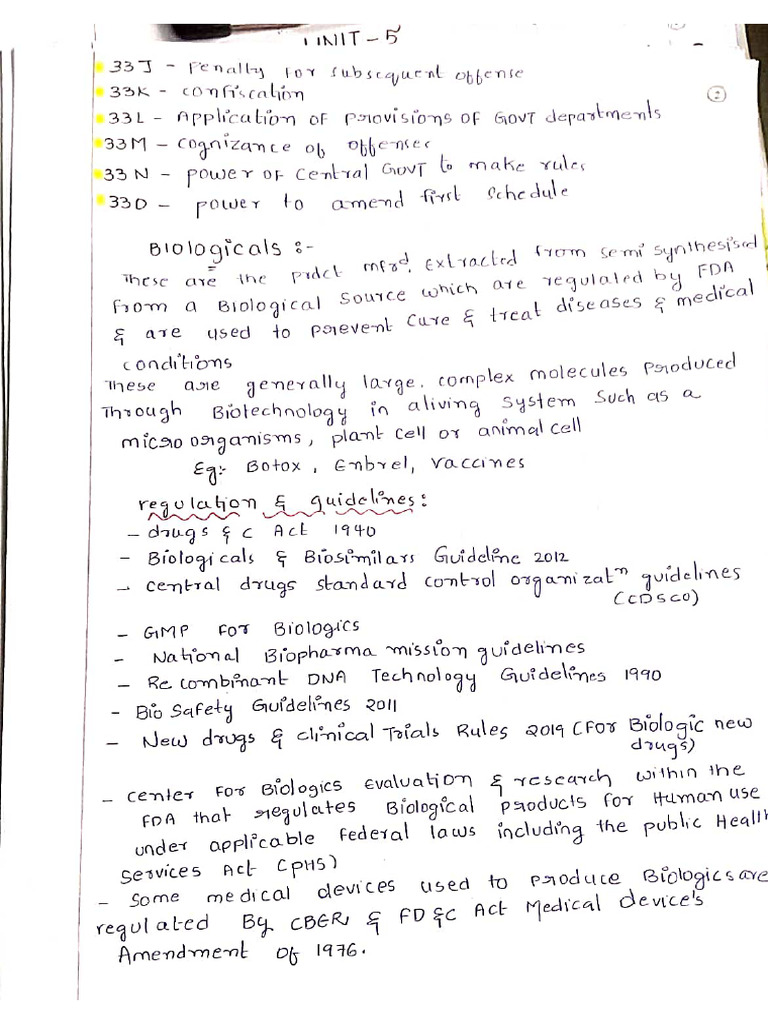 UNIT - 5
②
33J - Penalty for subsequent offense
33K - confiscation
33L - Application of provisions of Govt departments
33M - cognizance of offenses
33N - power of central Govt to make rules
33O - power to amend first schedule
Biologicals :-
These are the prdct mfrd. extracted from semi synthesised
from a Biological source which are regulated by FDA
& are used to prevent cure & treat diseases & medical
conditions
These are generally large. complex molecules produced
through Biotechnology in a living system such as a
micro organisms, plant cell or animal cell
Eg:- Botox, Enbrel, vaccines
regulation & guidelines:
- drugs & C Act 1940
- Biologicals & Biosimilars Guideline 2012
- central drugs standard control organizatn guidelines
(CDSCO)
- GMP for Biologics
- National Biopharma mission guidelines
- Re combinant DNA Technology Guidelines 1990
- Bio Safety Guidelines 2011
- New drugs & clinical Trials Rules 2019 (for Biologic new
drugs)
- center for Biologics Evaluation & research within the
FDA that regulates Biological products for Human use
under applicable federal laws including the public Health
services Act (PHS)
- Some medical devices used to produce Biologics are
regulated By CBER & FD&C Act Medical device's
Amendment of 1976.